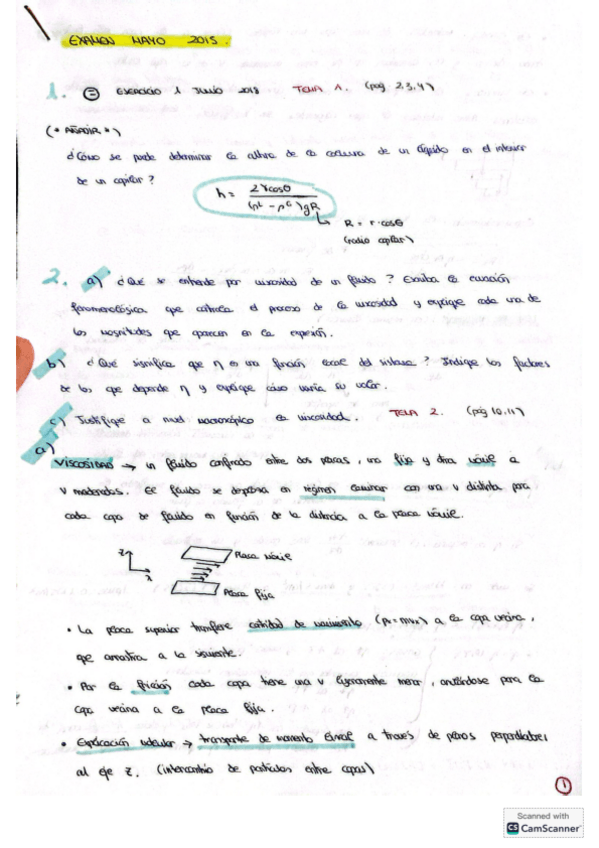 EXAMEN MAYO 2015.
1. = EJERCICIO 1 JUNIO 2018 TEMA 1. (pág 2,3,4)
(* AÑADIR *)
¿Cómo se puede determinar la altura de la columna de un líquido en el interior
de un capilar?
h = 2γcosθ / (ρᴸ - ρᴳ)gR
R = r·cosθ
(radio capilar)
2. a) ¿Qué se entiende por viscosidad de un fluido? Escriba la ecuación
fenomenológica que controla el proceso de la viscosidad y explique cada una de
las magnitudes que aparecen en la expresión.
b) ¿Qué significa que η es una función escalar del sistema? Indique los factores
de los que depende η y explique cómo varía su valor.
c) Justifique a nivel macroscópico la viscosidad. TEMA 2. (pág 10,11)
a)
VISCOSIDAD → un fluido confinado entre dos placas, una fija y otra móvil a
v moderadas. El fluido se desplaza en régimen laminar con una v distinta para
cada capa de fluido en función de la distancia a la placa móvil.
z
x
Placa móvil
Placa fija
• La placa superior transfiere cantidad de movimiento (pₓ = mvₓ) a la capa vecina,
que arrastra a la siguiente.
• Por la fricción cada capa tiene una v ligeramente menor, anulándose para la
capa vecina a la placa fija.
• Explicación molecular → transporte de momento lineal a través de planos perpendiculares
al eje z. (intercambio de partículas entre capas)
1
Scanned with
CS CamScanner